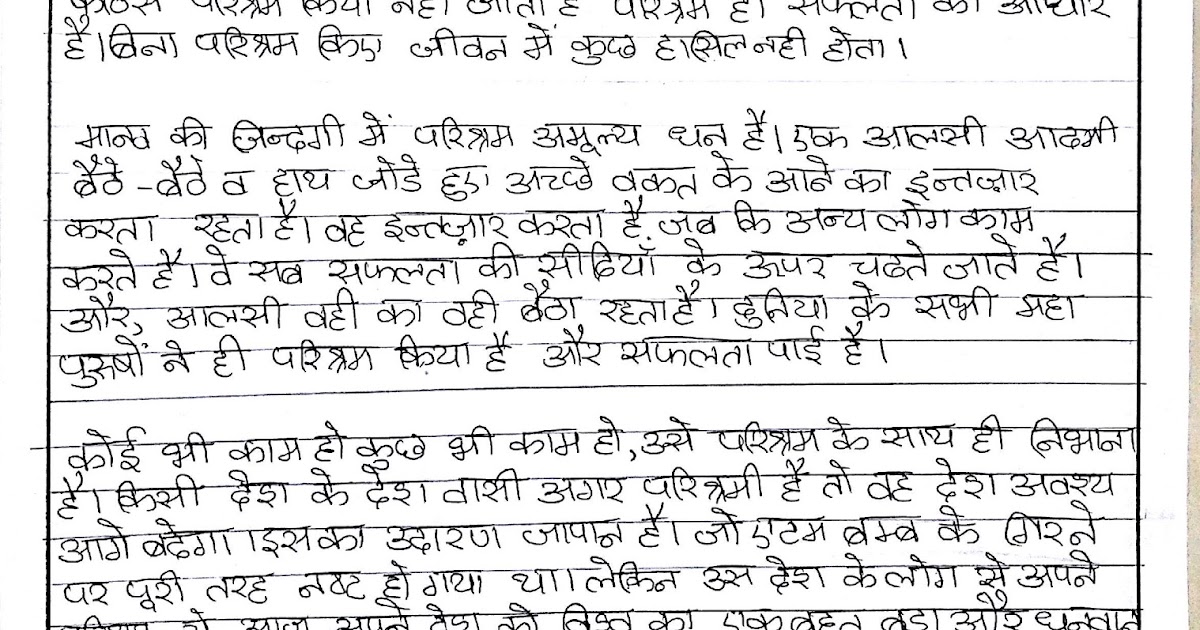 परिश्रम किया नही जाता है परिश्रम ही सफलता का आधार
है। बिना परिश्रम किए जीवन में कुछ हासिल नही होता।
मानव की जिन्दगी में परिश्रम अमूल्य धन है। एक आलसी आदमी
बैठे-बैठे व हाथ जोडे हुए अच्छे वकत के आने का इन्तज़ार
करता रहता है। वह इन्तज़ार करता है जब कि अन्य लोग काम
करते है। वे सब सफलता की सीढियाँ के ऊपर चढते जाते है।
और, आलसी वही का वही बैठा रहता है। दुनिया के सभी महा
पुरुषों ने ही परिश्रम किया है और सफलता पाई है।
कोई भी काम हो कुछ भी काम हो, उसे परिश्रम के साथ ही निभाना
है। किसी देश के देश वासी अगर परिश्रमी है तो वह देश अवश्य
आगे बढेगा। इसका उदारण जापान है। जो एटम बम्ब के गिरने
पर पूरी तरह नष्ट हो गया था। लेकिन उस देश के लोग से अपने
आज अपने देश को विश्व का एक बहुत बडा और धनवान